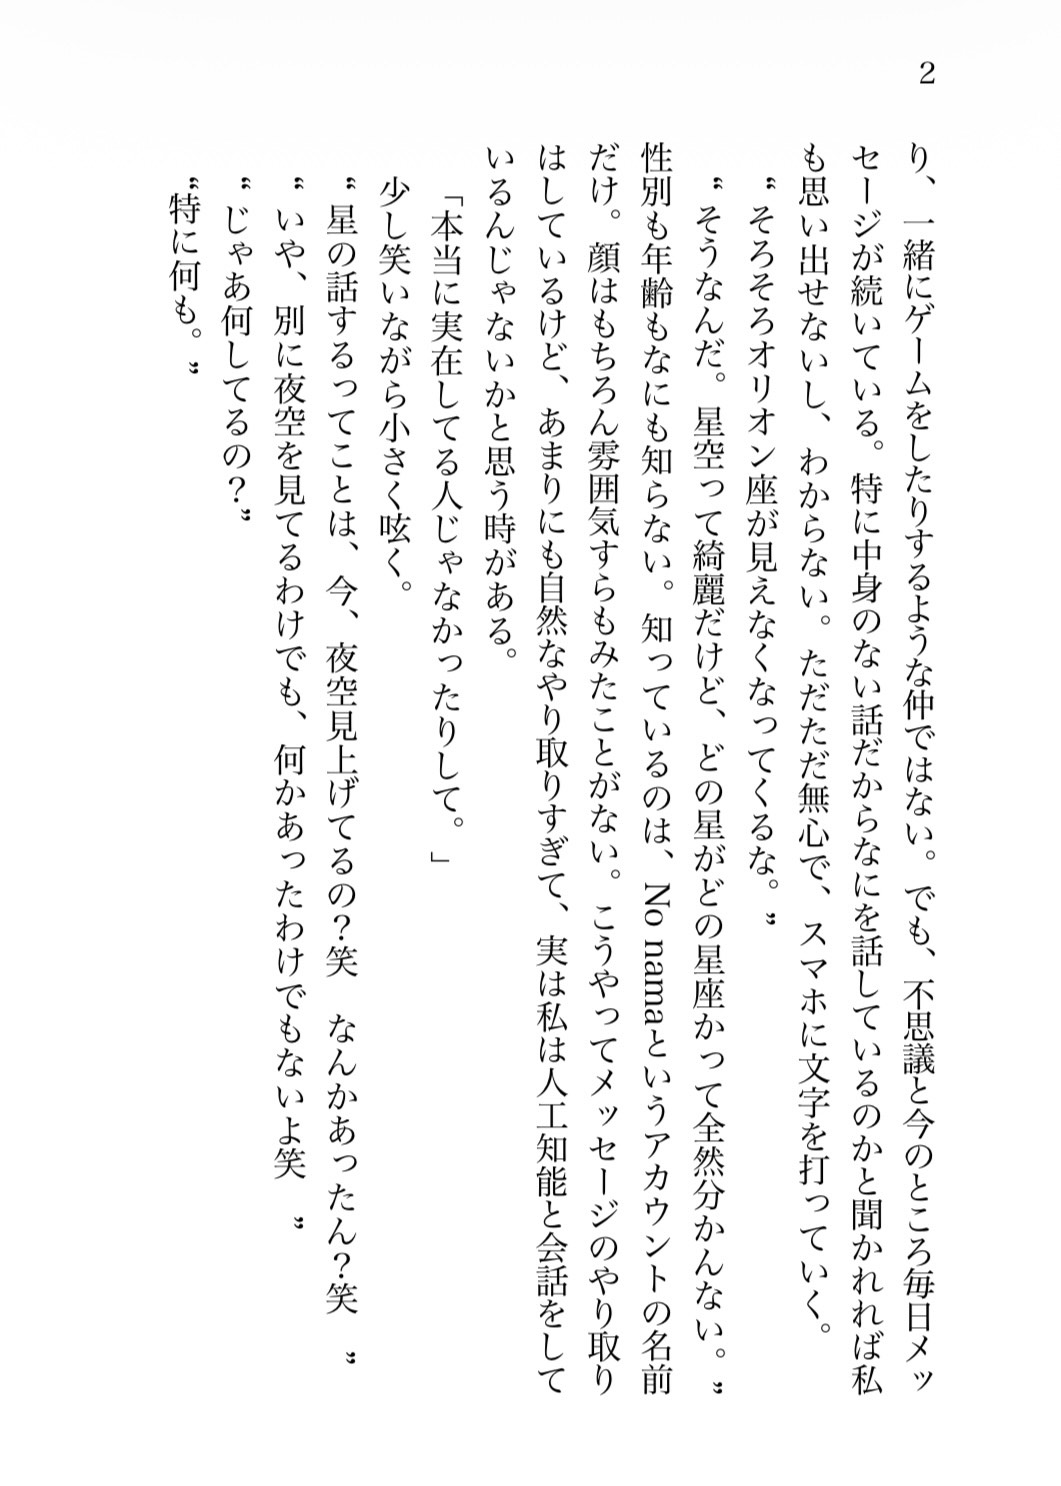 2
り、一緒にゲームをしたりするような仲ではない。でも、不思議と今のところ毎日メッ
セージが続いている。特に中身のない話だからなにを話しているのかと聞かれれば私
も思い出せないし、わからない。ただただ無心で、スマホに文字を打っていく。
“そろそろオリオン座が見えなくなってくるな。”
“そうなんだ。星空って綺麗だけど、どの星がどの星座かって全然分かんない。”
性別も年齢もなにも知らない。知っているのは、No namaというアカウントの名前
だけ。顔はもちろん雰囲気すらもみたことがない。こうやってメッセージのやり取り
はしているけど、あまりにも自然なやり取りすぎて、実は私は人工知能と会話をして
いるんじゃないかと思う時がある。
「本当に実在してる人じゃなかったりして。」
少し笑いながら小さく呟く。
“星の話するってことは、今、夜空見上げてるの？笑　なんかあったん？笑　”
“いや、別に夜空を見てるわけでも、何かあったわけでもないよ笑　”
“じゃあ何してるの？”
“特に何も。”